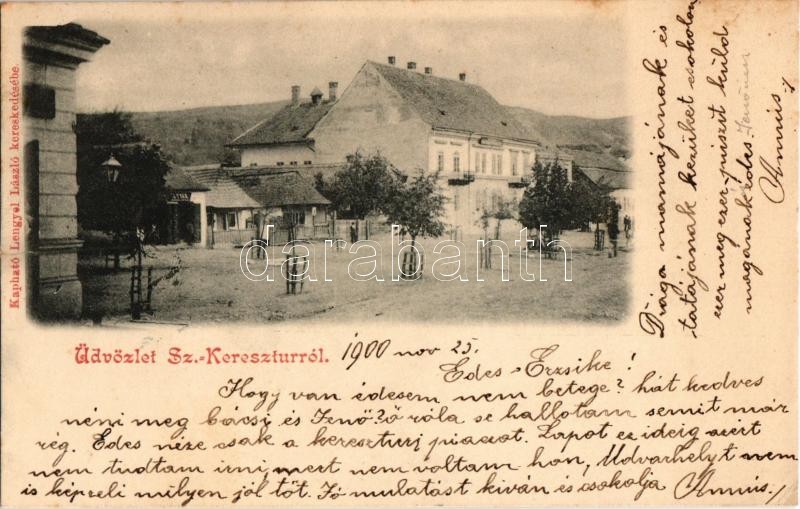 Kapható Lengyel László kereskedésébe.
darabanth
Üdvözlet Sz.-Kereszturról.
1900 nov 25.
Edes Erzsike!
Hogy van édesem nem betege? hát kedves
néni meg bácsi és Jenő? ő róla se hallotam semit már
rég. Edes néze csak a kereszturi piaczot. Lapot ez ideig azért
nem tudtam irni, mert nem voltam hon, Udvarhelyt nem
is képzeli milyen jól töt. Jó mulatást kíván és csokolja Annus!
Drága mamájának és
tatájának kezüket csokolom
ezer meg ezer puszit küld
magának édes Jenőnek
Annus